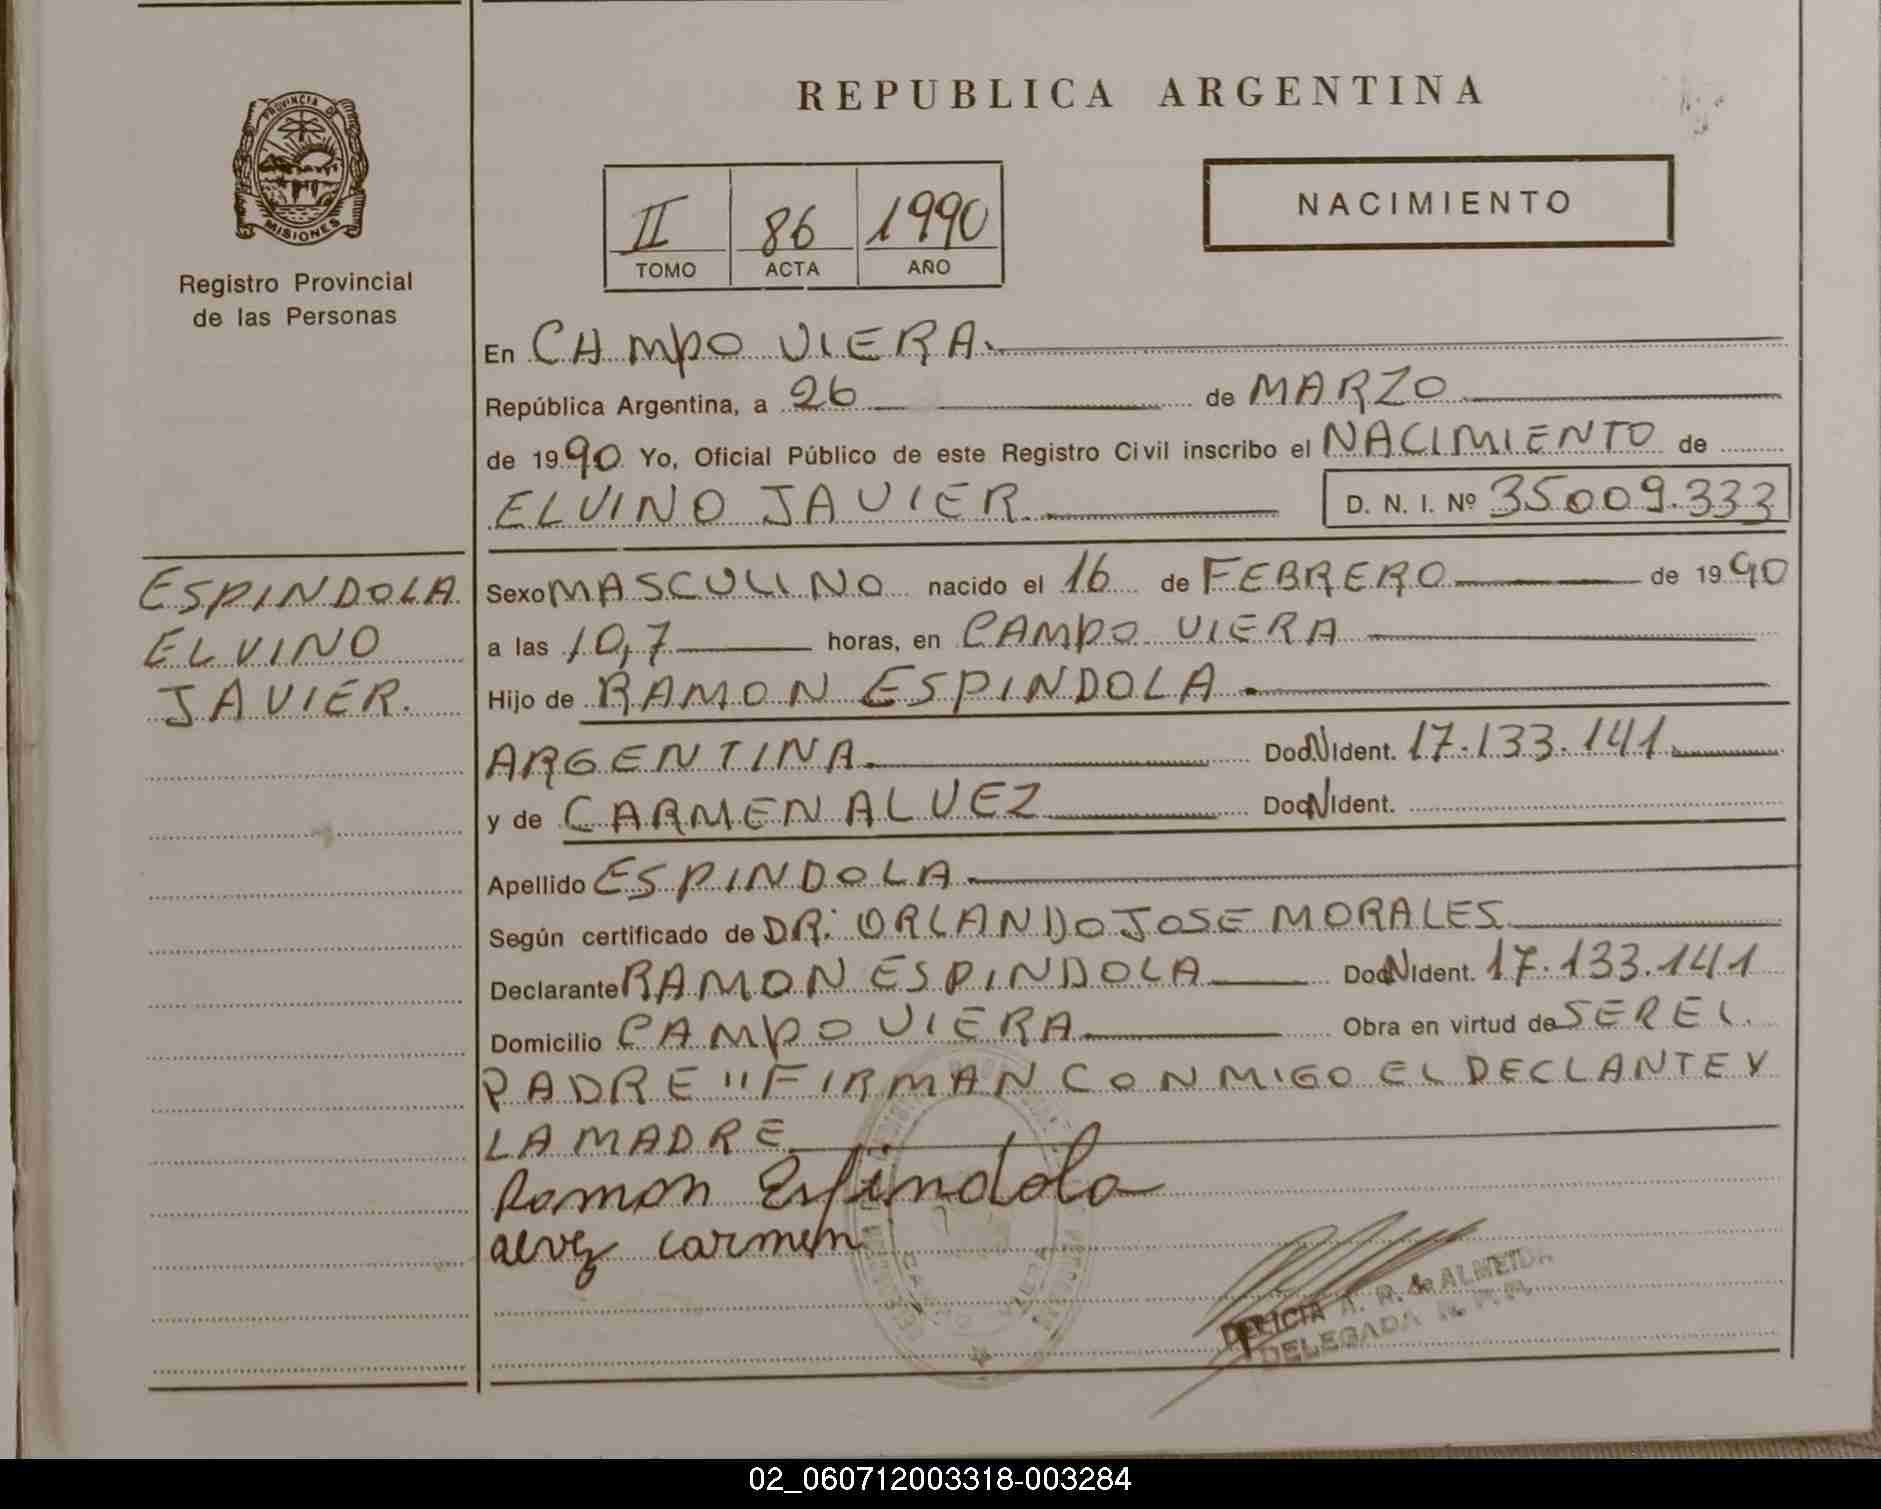 REPUBLICA ARGENTINA
PROVINCIA DE
MISIONES
Registro Provincial
de las Personas
II 86 1990
TOMO ACTA AÑO
NACIMIENTO
En CAMPO VIERA.
República Argentina, a 26 de MARZO
de 1990 Yo, Oficial Público de este Registro Civil inscribo el NACIMIENTO de
ELVINO JAVIER D. N. I. Nº 35009.333
ESPINDOLA
ELVINO
JAVIER.
Sexo MASCULINO nacido el 16 de FEBRERO de 1990
a las 10,7 horas, en CAMPO VIERA
Hijo de RAMON ESPINDOLA
ARGENTINA Doc.N Ident. 17.133.141
y de CARMEN ALVEZ Doc N Ident.
Apellido ESPINDOLA
Según certificado de DR: ORLANDO JOSE MORALES
Declarante RAMON ESPINDOLA Doc N Ident. 17.133.141
Domicilio CAMPO VIERA Obra en virtud de SER EL
PADRE " FIRMAN CONMIGO EL DECLANTE Y
LA MADRE
Ramon Espindola
alvez carmen
DELICIA A. R. de ALMEIDA
DELEGADA
02_060712003318-003284